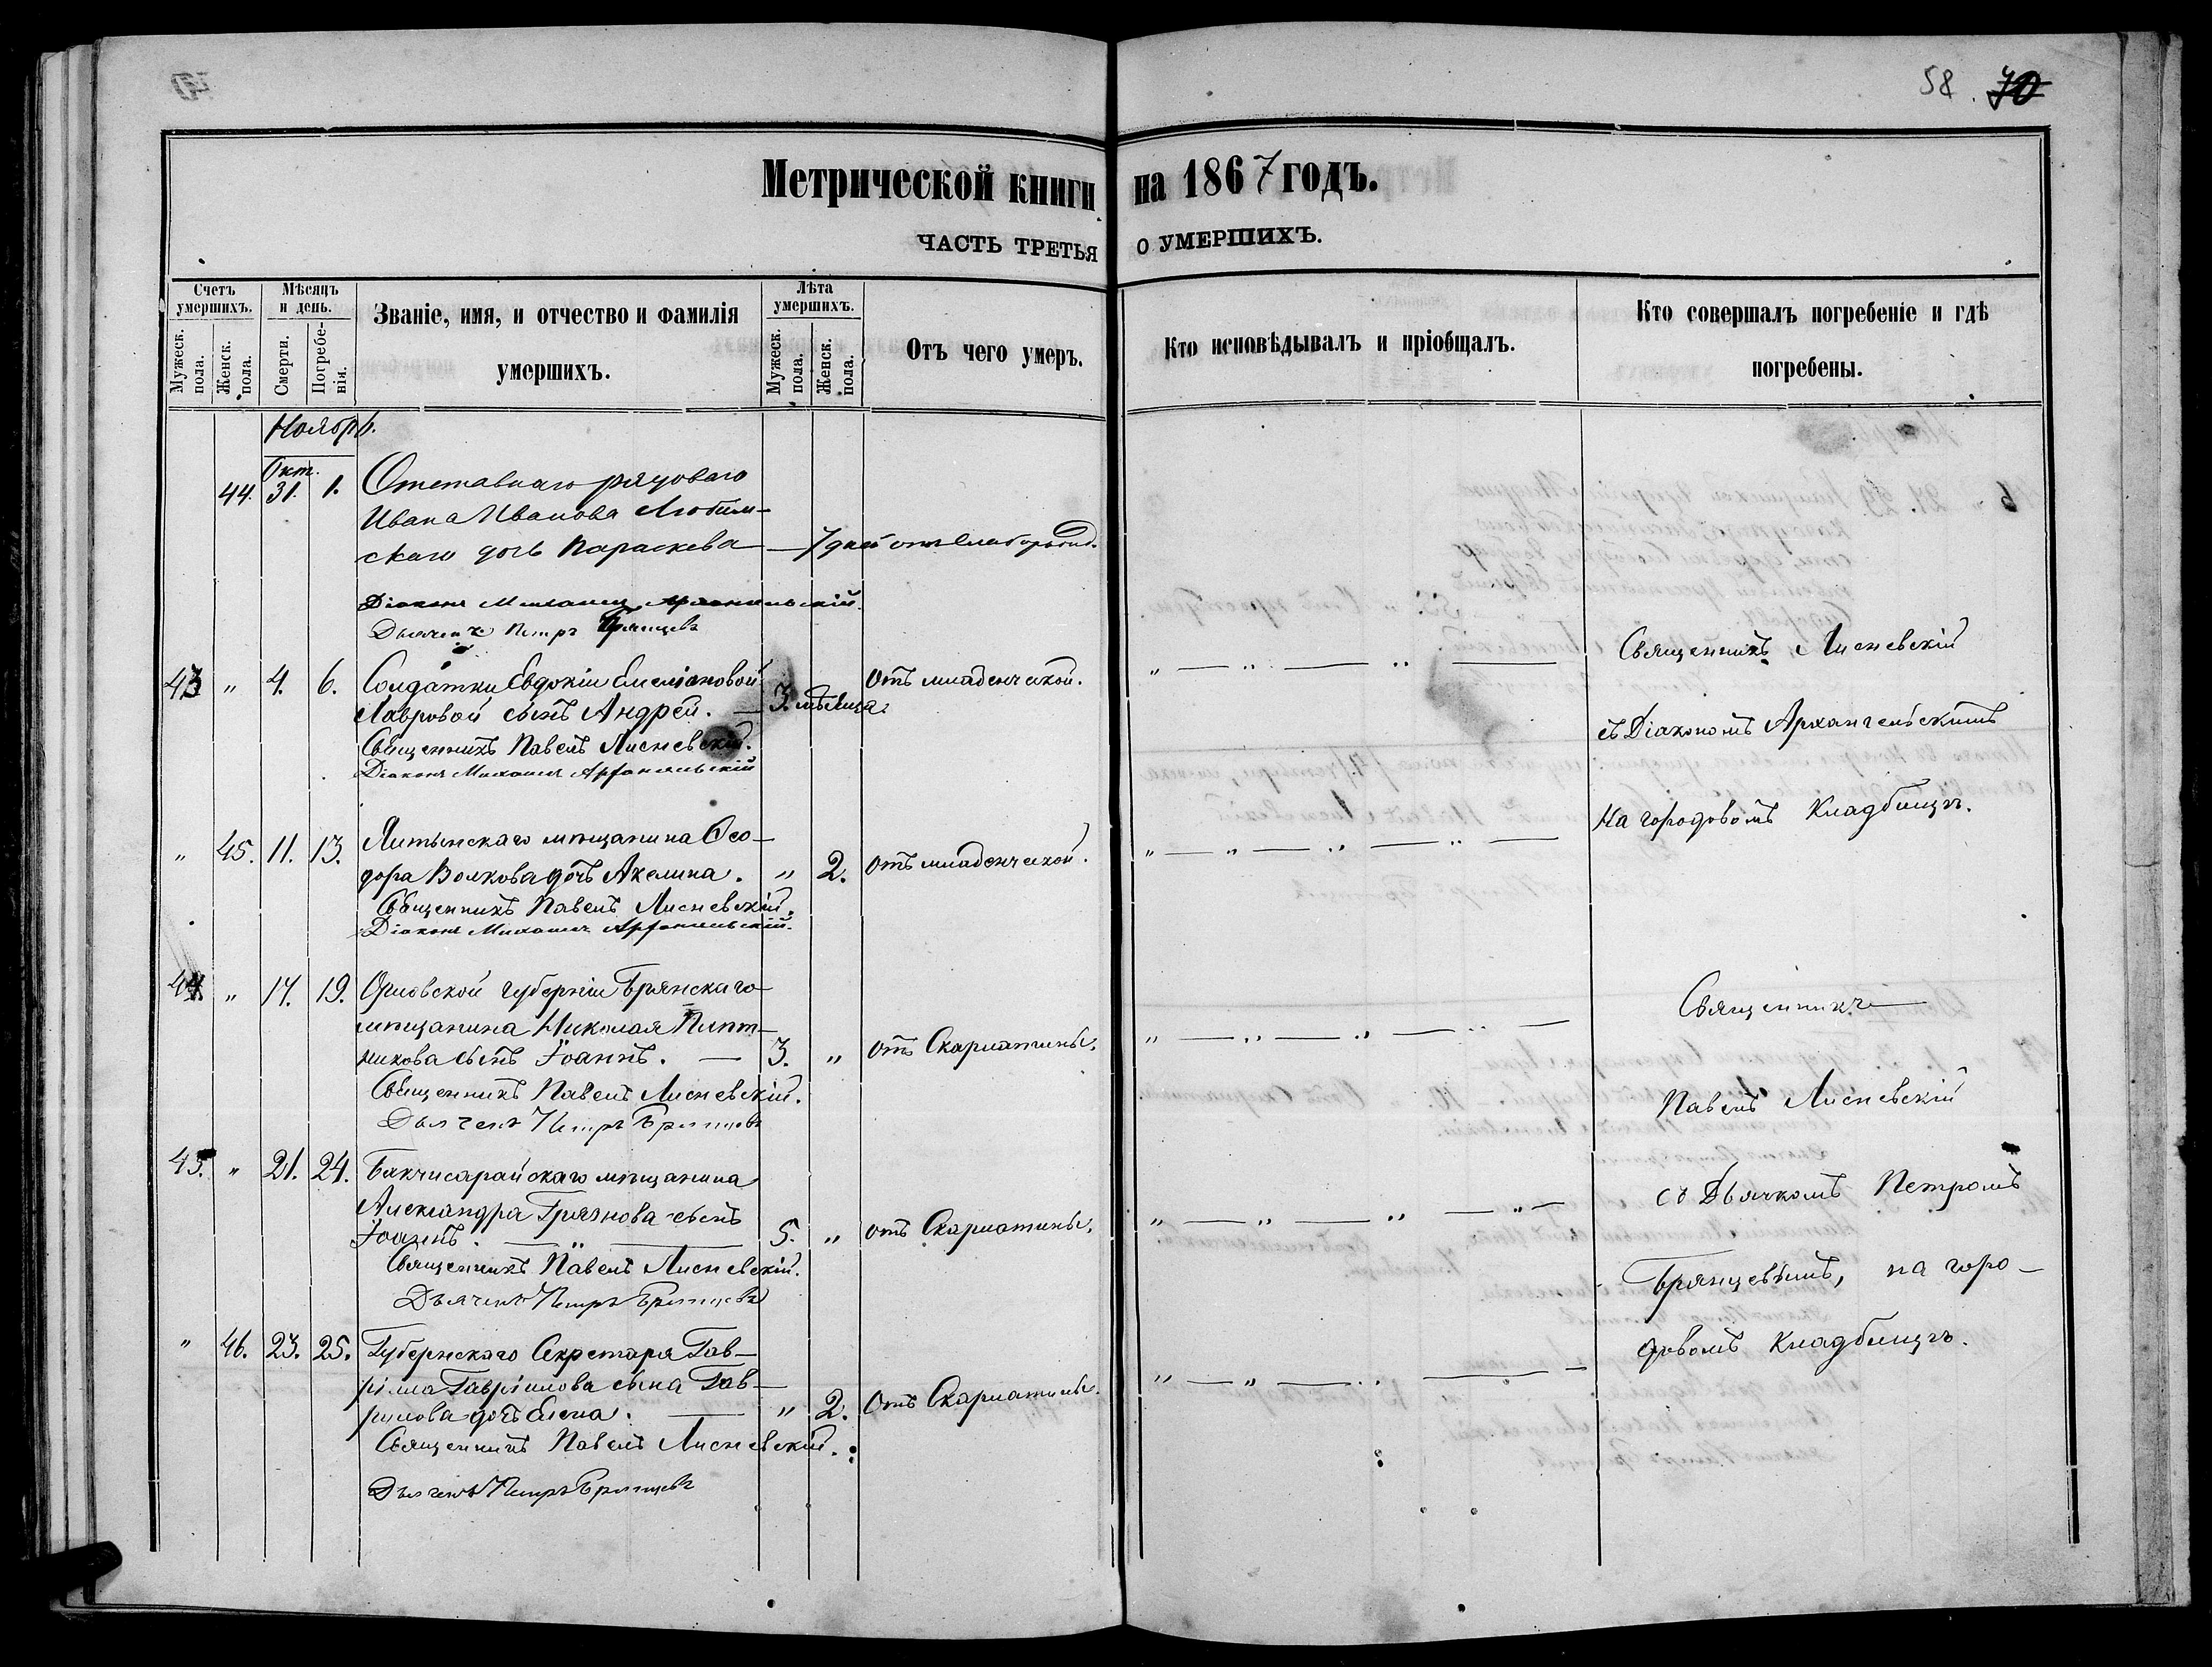 58. 70
Метрической книги на 1867 годъ.
ЧАСТЬ ТРЕТЬЯ О УМЕРШИХЪ.
Счетъ умершихъ.
Мужеск. пола.
Женск. пола.
Мѣсяцъ и день.
Смерти.
Погребенія.
Званіе, имя, и отчество и фамилія умершихъ.
Лѣта умершихъ.
Мужеск. пола.
Женск. пола.
Отъ чего умеръ.
Кто исповѣдывалъ и пріобщалъ.
Кто совершалъ погребеніе и гдѣ погребены.
Ноябрь.
Окт.
44. 31. 1. Отставнаго рядоваго
Ивана Иванова Любим-
скаго дочь Параскева — 7 дней отъ
Діаконъ Михаилъ Архангельскій.
Дьячекъ Петръ Брянцевъ
43 " 4. 6. Солдатки Евдокіи Емеліановой
Лавровой сынъ Андрей. — 3. мѣсяца. Отъ младенческой.
Священникъ Павелъ Лисневскій.
Діаконъ Михаилъ Архангельскій
Священникъ Лисневскій
съ Діакономъ Архангельскимъ
На городовомъ Кладбищѣ.
" 45. 11. 13. Ялтинскаго мѣщанина Ѳео-
дора Волкова дочь Акелина. " 2. Отъ младенческой.
Священникъ Павелъ Лисневскій.
Діаконъ Михаилъ Архангельскій.
44. " 17. 19. Орловской губерніи Брянскаго
мѣщанина Николая
никова сынъ Іоаннъ. — 3. " Отъ Скарлатины.
Священникъ Павелъ Лисневскій.
Дьячекъ Петръ Брянцевъ
45. " 21. 24. Бакчисарайскаго мѣщанина
Александра Грязнова сынъ
Іоаннъ. — " — 5. " Отъ Скарлатины.
Священникъ Павелъ Лисневскій.
Дьячекъ Петръ Брянцевъ
" 46. 23. 25. Губернскаго Секретаря Гав-
ріила Гавріилова сына Гав-
рилова дочь Елена. — " 2. Отъ Скарлатины.
Священникъ Павелъ Лисневскій.
Дьячекъ Петръ Брянцевъ
Священникъ
Павелъ Лисневскій
съ Дьячкомъ Петромъ
Брянцевымъ, на горо-
довомъ Кладбищѣ.